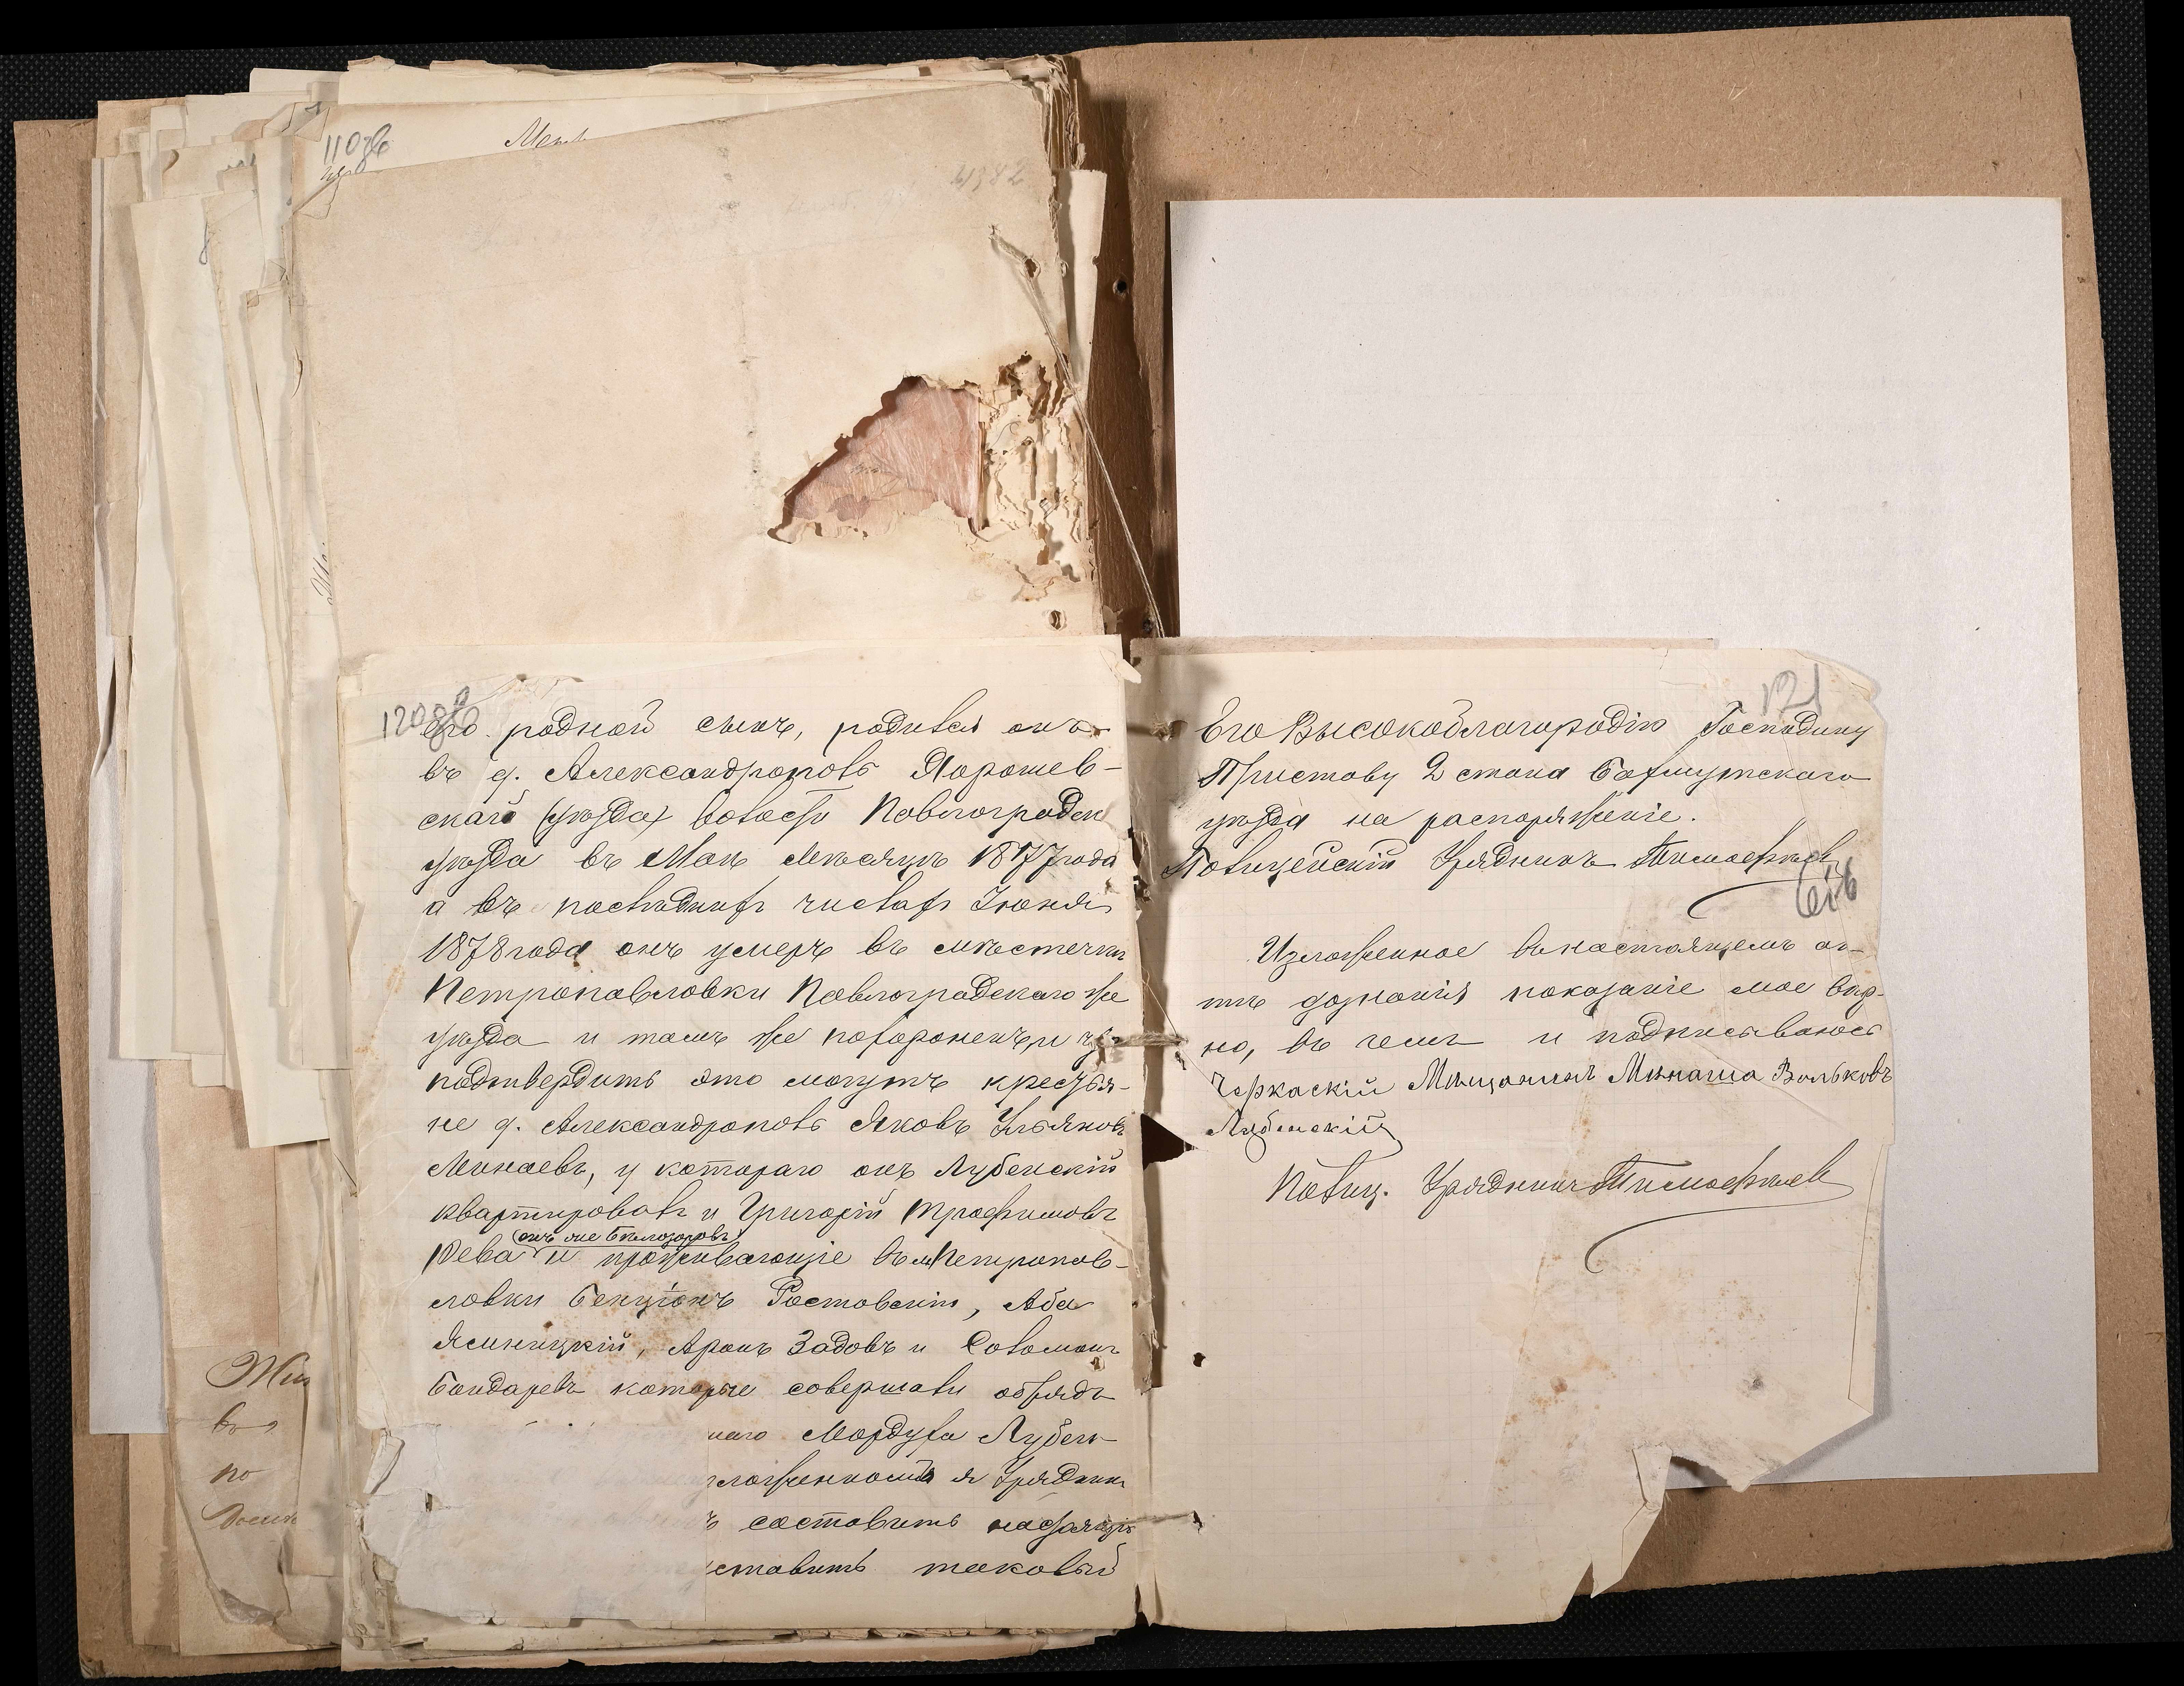 110об
Мет
120об
его родной сынъ, родився онъ
въ д. Александрополь Дорошев-
ской (уѣзда) волости Павлоградск
уѣзда въ Маѣ Мѣсяцѣ 1877 года
а въ послѣднихъ числахъ Іюня
1878 года онъ умеръ въ мѣстечки
Петропавловки Павлоградскаго же
уѣзда и тамъ же похороненъ, и
подтвердить это могутъ крестья-
не д. Александрополь Яковъ Ульяновъ
Минаевъ, у котораго онъ Лубенскій
квартировалъ и Григорій Трофимовъ
(онъ же Бѣлозоровъ)
Рева и проживающіе въ м Петропав-
ловки Бенціонъ Ростовскій, Аба
Ясиницкій, Аронъ Задовъ и Соломонъ
Бондаревъ которые совершали обрядъ
наго Мордуха Лубен
зложенномъ я Урядник
ъ составить настоящій
ставить таковый
121
Его Высокоблагородію Господину
Приставу 2 стана Бахмутскаго
уѣзда на распоряженіе.
Полицейскій Урядникъ Тимофѣевъ
Изложенное въ настоящемъ ак-
тѣ дознанія показаніе мое вѣр-
но, въ чемъ и подписываюсь
Черкаскій Мѣщанинъ Минаша Вольковъ
Лубенскій
Полиц. Урядникъ Тимофѣев
Жи
въ
по